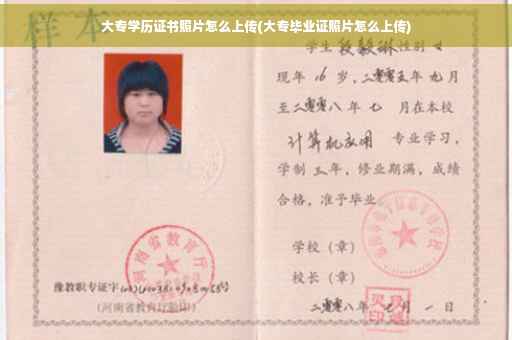 大专学历证书照片怎么上传(大专毕业证照片怎么上传)
样本
学生 段毅琳 性别 女
现年 16 岁，二零零五年 九月
至二零零八年 七 月在本校
计算机应用 专业学习，
学制 三 年，修业期满，成绩
合格，准予毕业
学校（章）
校长（章）
二零零八年 七 月 一 日
河南省教育厅
豫教职专证字
（河南省教育厅验印）